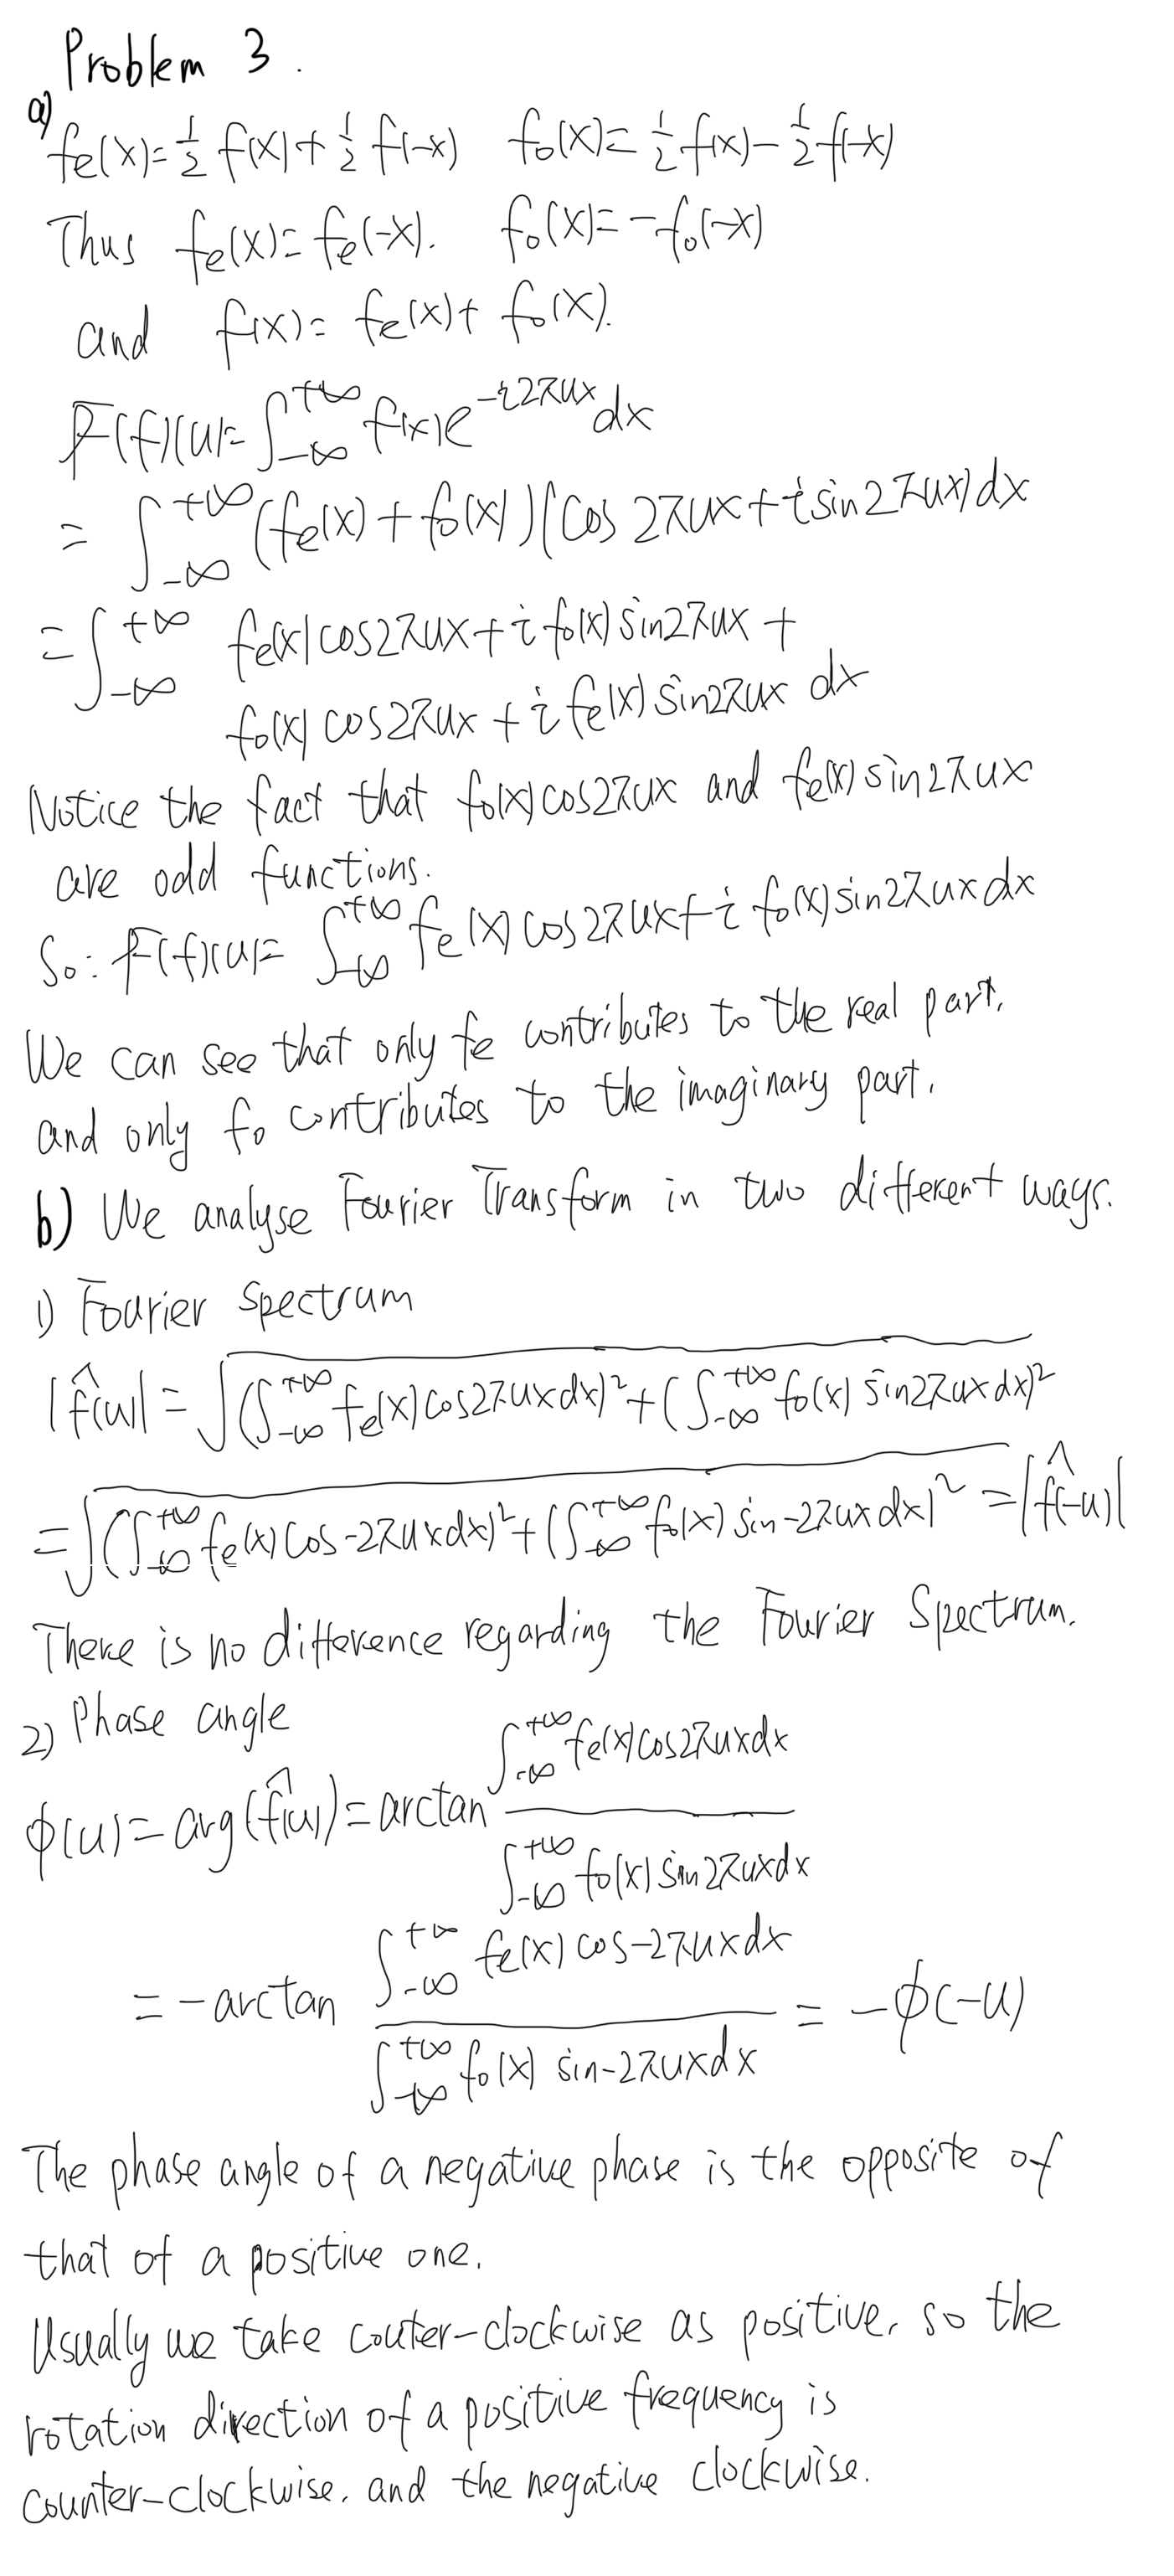 Problem 3.
a)
fe(x)=1/2 f(x)+1/2 f(-x)   fo(x)=1/2 f(x)-1/2 f(-x)
Thus fe(x)=fe(-x).   fo(x)=-fo(-x)
and   f(x)= fe(x)+ fo(x).
F(f)(u)=∫_{-∞}^{+∞} f(x)e^{-i2πux}dx
= ∫_{-∞}^{+∞} (fe(x)+fo(x))(cos 2πux+i sin2πux)dx
=∫_{-∞}^{+∞} fe(x)cos2πux+i fo(x)sin2πux+
fo(x)cos2πux+i fe(x)sin2πux dx
Notice the fact that fo(x)cos2πux and fe(x)sin2πux
are odd functions.
So: F(f)(u)= ∫_{-∞}^{+∞} fe(x)cos2πux+i fo(x)sin2πux dx
We can see that only fe contributes to the real part,
and only fo contributes to the imaginary part.
b) We analyse Fourier Transform in two different ways.
1) Fourier Spectrum
|f̂(u)|=√((∫_{-∞}^{+∞} fe(x)cos2πuxdx)²+(∫_{-∞}^{+∞} fo(x) sin2πuxdx)²)
=√((∫_{-∞}^{+∞} fe(x)cos-2πuxdx)²+(∫_{-∞}^{+∞} fo(x) sin-2πuxdx)²)=|f̂(-u)|
There is no difference regarding the Fourier Spectrum.
2) Phase angle
ϕ(u)=arg(f̂(u))=arctan (∫_{-∞}^{+∞} fe(x)cos2πuxdx)/(∫_{-∞}^{+∞} fo(x)sin2πuxdx)
= -arctan (∫_{-∞}^{+∞} fe(x)cos-2πuxdx)/(∫_{-∞}^{+∞} fo(x) sin-2πuxdx) = -ϕ(-u)
The phase angle of a negative phase is the opposite of
that of a positive one.
Usually we take couter-clockwise as positive, so the
rotation direction of a positive frequency is
counter-clockwise, and the negative clockwise.